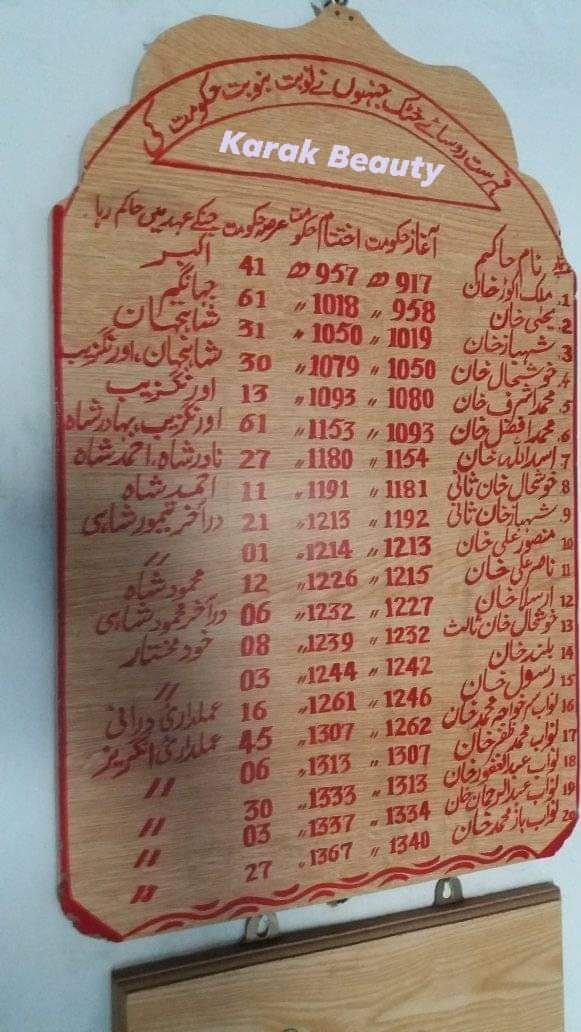 فہرست روسائے خٹک جنہوں نے نوبت بنوبت حکومت کی
Karak Beauty
نام حاکم آغاز حکومت اختتام حکومت عرصہ حکومت جنکے عہد میں حاکم رہا
1. ملک اکوڑ خان 917ھ 957ھ 41 اکبر
2. یحیٰی خان 958 〃 1018 〃 61 جہانگیر
3. شہباز خان 1019 1050 〃 31 شاہجہان
4. خوشحال خان 1050 〃 1079 〃 30 شاہجہان، اورنگزیب
5. محمد اشرف خان 1080 〃 1093 〃 13 اورنگزیب
6. محمد افضل خان 1093 〃 1153 〃 61 اورنگزیب، بہادر شاہ
7. اسد اللہ خان 1154 〃 1180 〃 27 نادر شاہ، احمد شاہ
8. خوشحال خان ثانی 1181 〃 1191 〃 11 احمد شاہ
9. شہباز خان ثانی 1192 〃 1213 〃 21 درآخر تیمور شاہی
10 منصور علی خان 1213 〃 1214 〃 01 〃
11 ناصر علی خان 1215 〃 1226 〃 12 محمود شاہ
12 ارسلا خان 1227 〃 1232 〃 06 درآخر محمود شاہی
13 خوشحال خان ثالث 1232 〃 1239 〃 08 خود مختار
14 بلند خان 1242 〃 1244 〃 03 〃
15 رسول خان 1246 〃 1261 〃 16 عملداری درانی
16 نواب سر خواجہ محمد خان 1262 〃 1307 〃 45 عملداری انگریز
17 نواب محمد ظفر خان 1307 〃 1313 〃 06 〃
18 نواب عبدالغفور خان 1313 〃 1333 〃 30 〃
19 نواب عبدالرحمان خان 1334 〃 1337 〃 03 〃
20 نواب باز محمد خان 1340 〃 1367 〃 27 〃